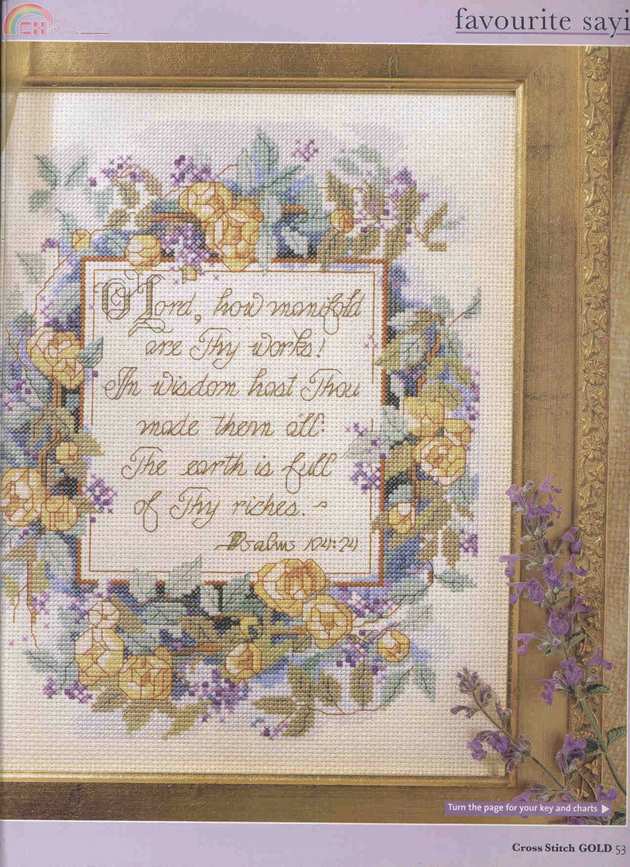 CH
favourite sayi
O Lord, how manifold
are Thy works!
In wisdom hast Thou
made them all:
The earth is full
of Thy riches.
Psalms 104:24
Turn the page for your key and charts
Cross Stitch GOLD 53